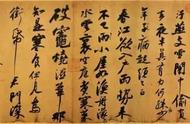 汙燕支雪闇中偷負
去夜半真有力何殊病少
年子病起頭已白
春江欲入戶雨勢來
不已雨小屋如漁舟濛濛
水雲裏空庖煮寒菜
破竈燒濕葦那
知是寒食但見烏
銜帋君門深